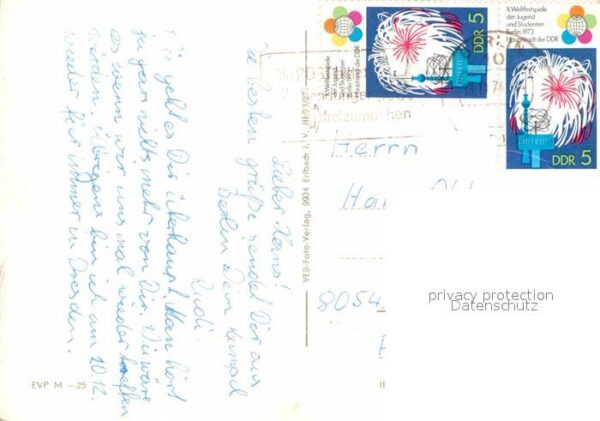 Lieber Hans!
Die besten Grüße sendet Dir aus
Berlin Dein Kumpel
Rudi
Wie geht es Dir überhaupt. Man hört
ja gar nichts mehr von Dir. Wie wäre
es wenn wir uns mal wieder treffen
würden. Übrigens bin ich am 20.12.
wieder für immer in Dresden.
EVP M –.25
VEB-Foto-Verlag, 9934 Erlbach i. V.
X. Weltfestspiele
der Jugend
und Studenten
Berlin 1973
Hauptstadt der DDR
DDR 5
X. Weltfestspiele
der Jugend
und Studenten
Berlin 1973
Hauptstadt der DDR
DDR 5
Herrn
8054
privacy protection
Datenschutz